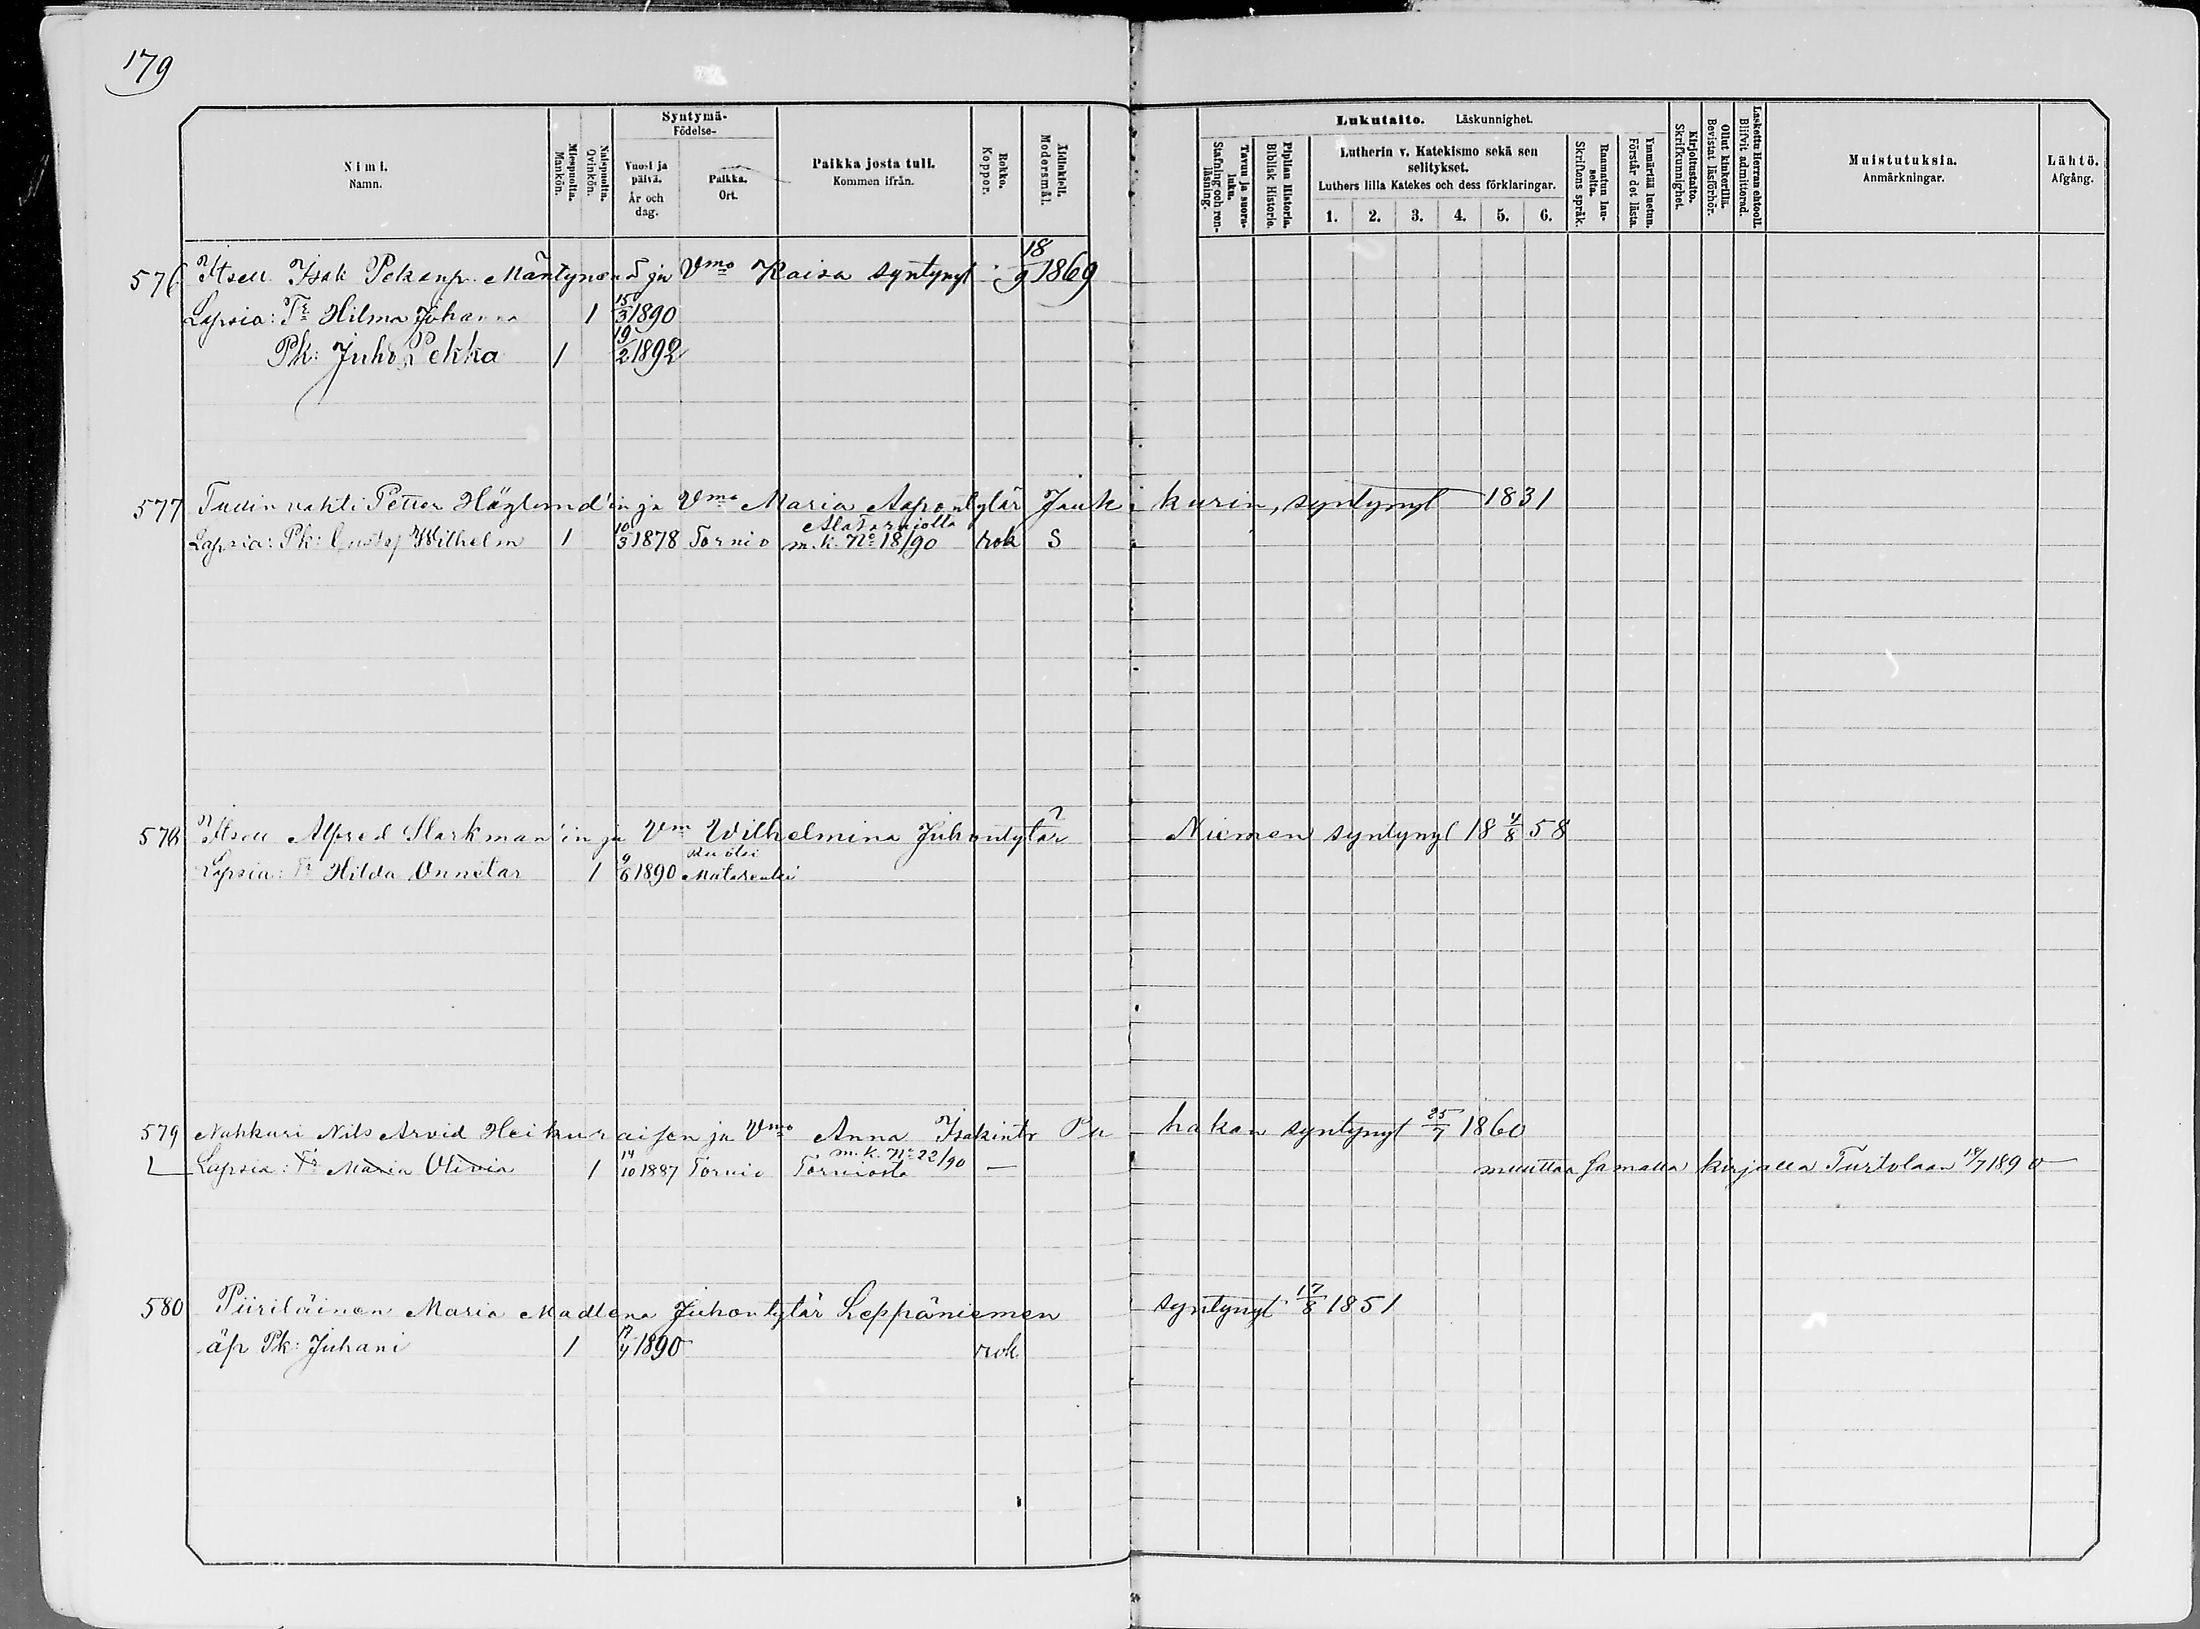 179
Nimi. Namn.
Miespuolta. Mankön.
Naispuolta. Qvinkön.
Syntymä- Födelse-
Vuosi ja päivä. År och dag.
Paikka. Ort.
Paikka josta tuli. Kommen ifrån.
Rokko. Koppor.
Äidinkieli. Modersmål.
Lukutaito. Läskunnighet.
Tavuu ja suora- luku. Stafning och ren- läsning.
Piplian Historia. Biblisk Historie.
Lutherin v. Katekismo sekä sen selitykset.
Luthers lilla Katekes och dess förklaringar.
1. 2. 3. 4. 5. 6.
Raamatun lau- seita. Skriftens språk.
Ymmärtää luetun. Förstår det lästa.
Kirjoitustaito. Skrifkunnighet.
Ollut kinkerillä. Bevistat läsförhör.
Laskettu Herran ehtooll. Blifvit admitterad.
Muistutuksia. Anmärkningar.
Lähtö. Afgång.
576 Itsell. Isak Pekanp. Mäntynen ja Vmo Kaisa syntynyt 18/9 1869
Lapsia: Tr Hilma Johanna 1 15/3 1890
Pk: Juho Pekka 1 19/2 1892
577 Tullin vahti Petter Höglund'in ja Vmo Maria Aapontytär Jauhkurin, syntynyt 1831
Lapsia: Pk: Gustaf Wilhelm 1 10/3 1878 Tornio Alatorniolta m.k. No 18/90 rok S
578 Itsell Alfred Starkman'in ja Vm Wilhelmina Juhontytär Niemen syntynyt 18 4/8 58
Lapsia: Tr Hilda Onnetar 1 9/6 1890 Ruotsi Matarenki
579 Nahkuri Nils Arvid Heikuraisen ja Vmo Anna Isakintr Puhakan syntynyt 25/7 1860
L Lapsia: Tr Maria Olivia 1 14/10 1887 Tornio Torniosta m.k. No 22/90 — muuttaa samalla kirjalla Turtolaan 18/7 1890
580 Piiriläinen Maria Madlena Juhontytär Leppäniemen syntynyt 17/8 1851
äp Pk: Juhani 1 17/4 1890 rok